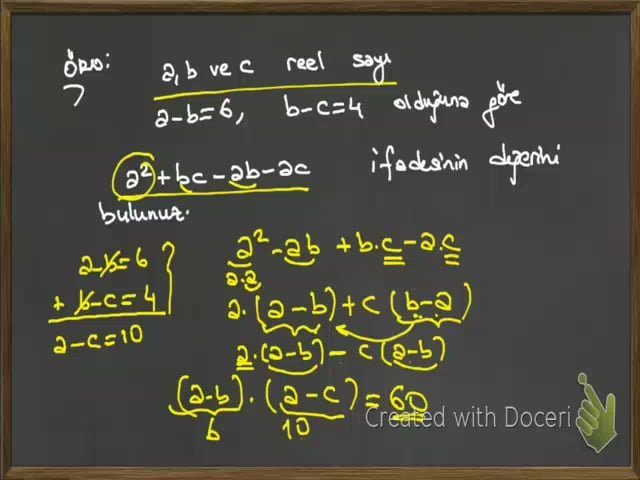 ÖRD: a, b ve c reel sayı
7
a-b=6, b-c=4 olduğuna göre
a²+bc-ab-ac ifadesinin değerini
bulunuz.
a-b=6
+ b-c=4
a-c=10
a²-ab+b.c-a.c
a.a
a.(a-b)+c(b-a)
a.(a-b)-c(a-b)
(a-b).(a-c)=60
6 10
Created with Doceri